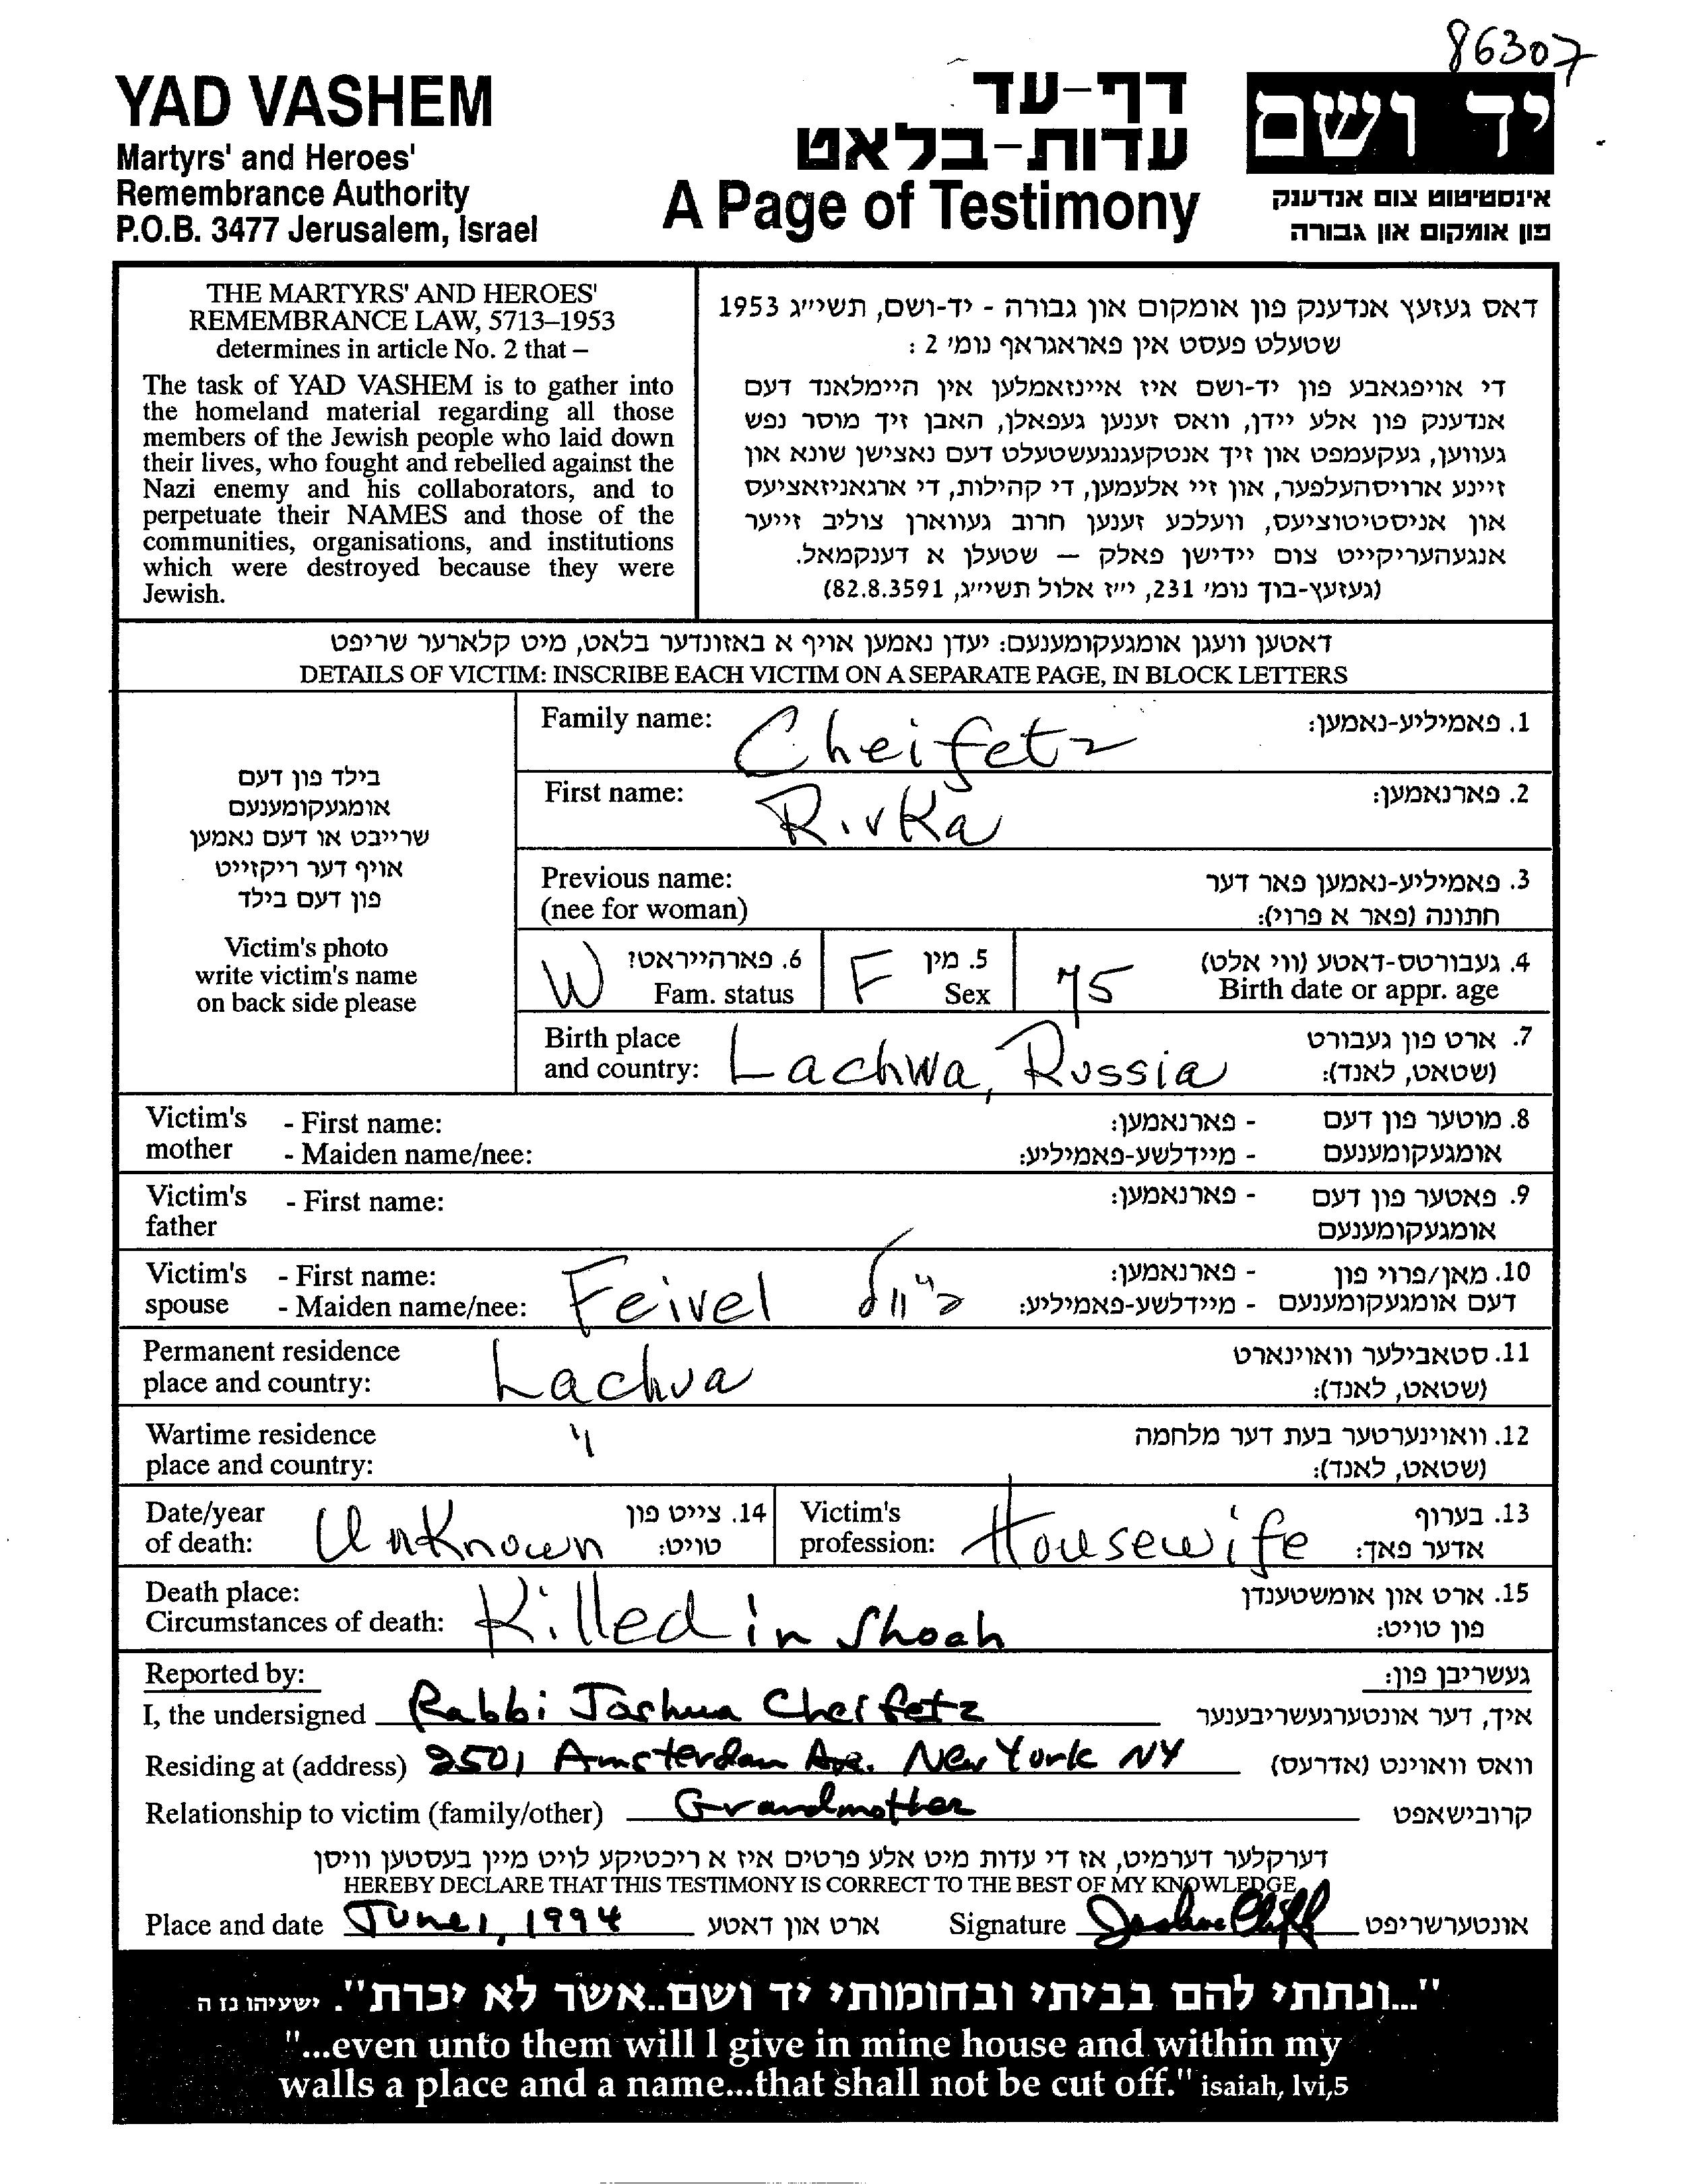 86307
YAD VASHEM
Martyrs' and Heroes'
Remembrance Authority
P.O.B. 3477 Jerusalem, Israel
דף-עד
עדות-בלאט
A Page of Testimony
יד ושם
אינסטיטוט צום אנדענק
פון אומקום און גבורה
THE MARTYRS' AND HEROES'
REMEMBRANCE LAW, 5713–1953
determines in article No. 2 that –
The task of YAD VASHEM is to gather into
the homeland material regarding all those
members of the Jewish people who laid down
their lives, who fought and rebelled against the
Nazi enemy and his collaborators, and to
perpetuate their NAMES and those of the
communities, organisations, and institutions
which were destroyed because they were
Jewish.
דאס געזעץ אנדענק פון אומקום און גבורה - יד-ושם, תשי״ג 1953
שטעלט פעסט אין פאראגראף נומ׳ 2 :
די אויפגאבע פון יד-ושם איז איינזאמלען אין היימלאנד דעם
אנדענק פון אלע יידן, וואס זענען געפאלן, האבן זיך מוסר נפש
געווען, געקעמפט און זיך אנטקעגנגעשטעלט דעם נאצישן שונא און
זיינע ארויסהעלפער, און זיי אלעמען, די קהילות, די ארגאניזאציעס
און אניסטיטוציעס, וועלכע זענען חרוב געווארן צוליב זייער
אנגעהעריקייט צום יידישן פאלק – שטעלן א דענקמאל.
(געזעץ-בוך נומ׳ 231, י״ז אלול תשי״ג, 82.8.3591)
דאטען וועגן אומגעקומענעם: יעדן נאמען אויף א באזונדער בלאט, מיט קלארער שריפט
DETAILS OF VICTIM: INSCRIBE EACH VICTIM ON A SEPARATE PAGE, IN BLOCK LETTERS
בילד פון דעם
אומגעקומענעם
שרייבט או דעם נאמען
אויף דער ריקזייט
פון דעם בילד
Victim's photo
write victim's name
on back side please
Family name: Cheifetz 1. פאמיליע-נאמען:
First name: Rivka 2. פארנאמען:
Previous name: 3. פאמיליע-נאמען פאר דער
(nee for woman) חתונה (פאר א פרוי):
W 6. פארהייראט? F 5. מין 75 4. געבורטס-דאטע (ווי אלט)
Fam. status Sex Birth date or appr. age
Birth place 7. ארט פון געבורט
and country: Lachwa, Russia (שטאט, לאנד):
Victim's - First name: - פארנאמען: 8. מוטער פון דעם
mother - Maiden name/nee: - מיידלשע-פאמיליע: אומגעקומענעם
Victim's - First name: - פארנאמען: 9. פאטער פון דעם
father אומגעקומענעם
Victim's - First name: - פארנאמען: 10. מאן/פרוי פון
spouse - Maiden name/nee: Feivel פייוול - מיידלשע-פאמיליע: דעם אומגעקומענעם
Permanent residence 11. סטאבילער וואוינארט
place and country: Lachva (שטאט, לאנד):
Wartime residence " 12. וואוינערטער בעת דער מלחמה
place and country: (שטאט, לאנד):
Date/year 14. צייט פון Victim's 13. בערוף
of death: Unknown טויט: profession: Housewife אדער פאך:
Death place: 15. ארט און אומשטענדן
Circumstances of death: Killed in Shoah פון טויט:
Reported by: געשריבן פון:
I, the undersigned Rabbi Joshua Cheifetz איך, דער אונטערגעשריבענער
Residing at (address) 2501 Amsterdam Ave. New York NY וואס וואוינט (אדרעס)
Relationship to victim (family/other) Grandmother קרובישאפט
דערקלער דערמיט, אז די עדות מיט אלע פרטים איז א ריכטיקע לויט מיין בעסטען וויסן
HEREBY DECLARE THAT THIS TESTIMONY IS CORRECT TO THE BEST OF MY KNOWLEDGE
Place and date June 1, 1994 ארט און דאטע Signature אונטערשריפט
"...ונתתי להם בביתי ובחומותי יד ושם..אשר לא יכרת". ישעיהו נז ה
"...even unto them will I give in mine house and within my
walls a place and a name...that shall not be cut off." isaiah, lvi,5